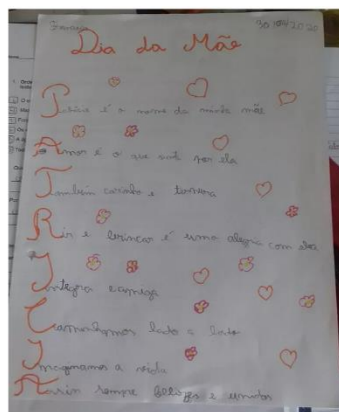 30 04 2020
Dia da Mãe
Patrícia é o nome da minha mãe
Amor é o que sinto por ela
Também carinho e ternura
Rir e brincar é uma alegria com ela
Íntegra e amiga
Caminhamos lado a lado
Imaginamos a vida
Assim sempre felizes e unidos